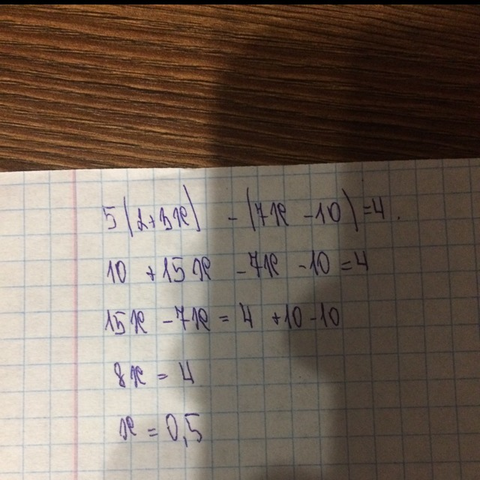 5(2+3x) - (7x - 10) = 4.
10 + 15x - 7x - 10 = 4
15x - 7x = 4 + 10 - 10
8x = 4
x = 0,5